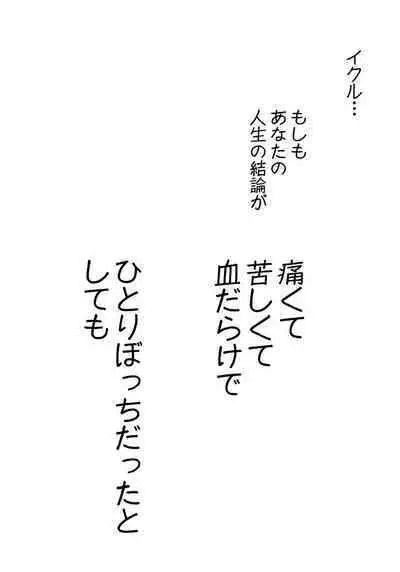 イクル…
もしも
あなたの
人生の結論が
痛くて
苦しくて
血だらけで
ひとりぼっちだったと
しても